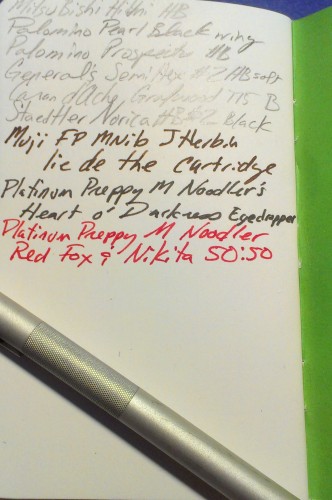 MitsuBishi Hi Uni HB
Palomino Pearl Blackwing
Palomino Prospector HB
General's Semi Hex #2 HB soft
Caran d'Ache Grafwood 775 B
Staedtler Norica HB #2 Black
Muji FP M Nib J Herbin
lie de the Cartridge
Platinum Preppy M Noodler's
Heart o' Darkness Eyedropper
Platinum Preppy M Noodler
Red Fox & Nikita 50:50